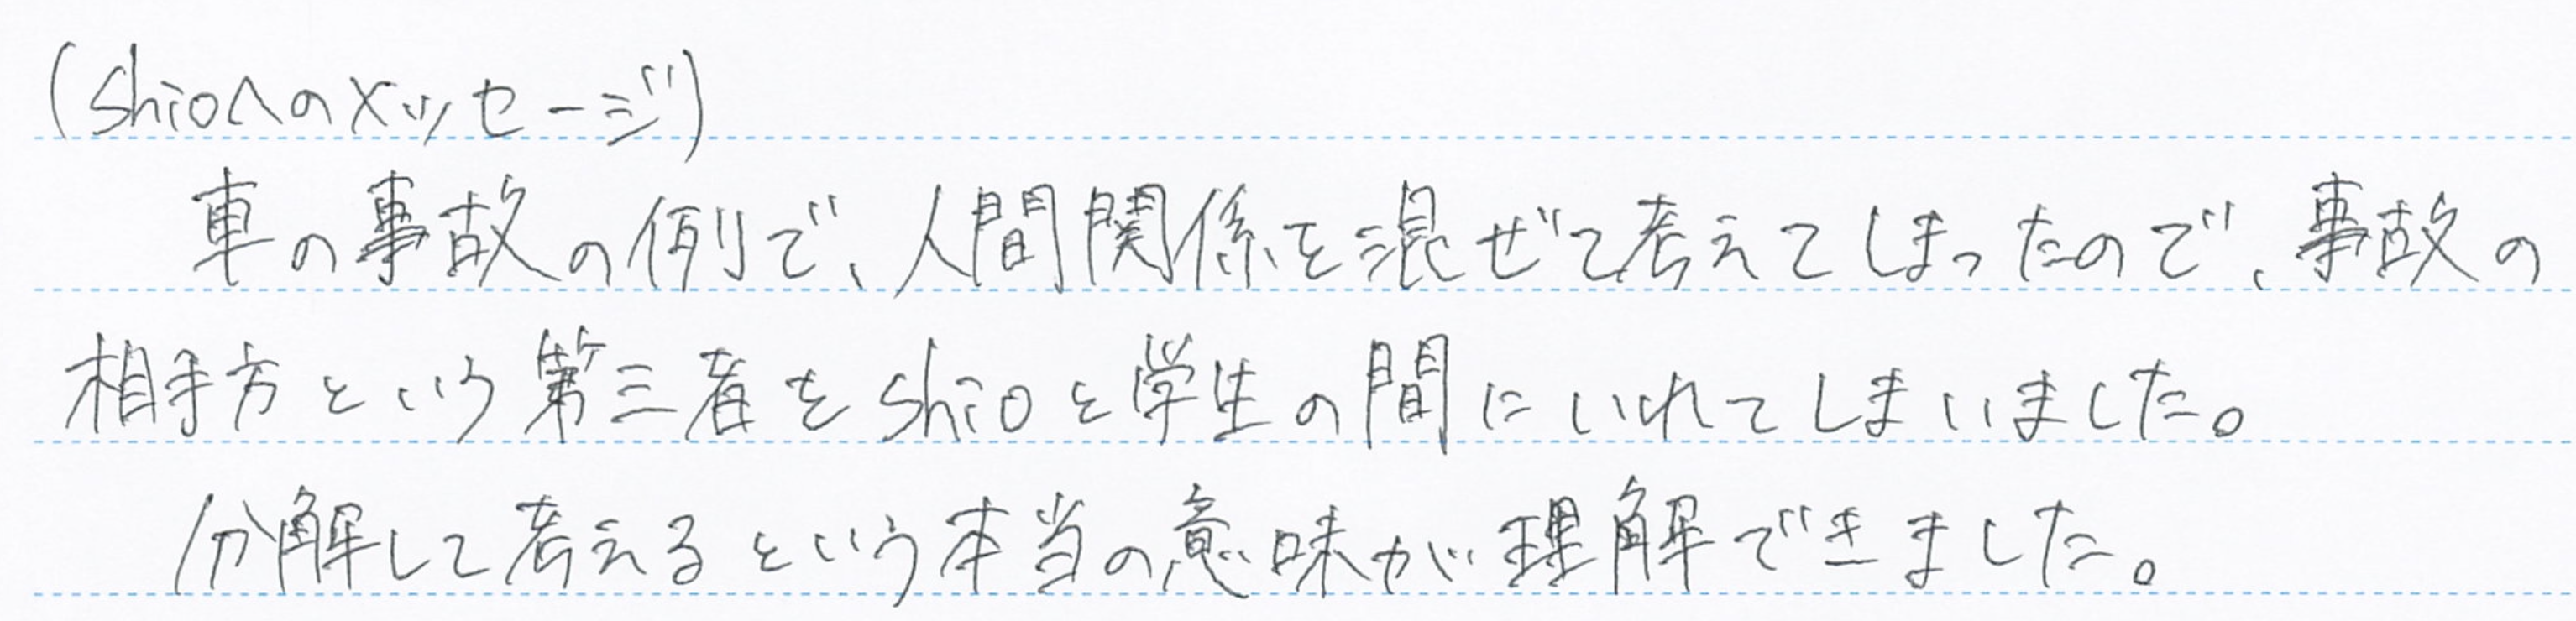 (shioへのメッセージ)
車の事故の例で、人間関係を混ぜて考えてしまったので、事故の
相手方という第三者をshioと学生の間にいれてしまいました。
分解して考えるという本当の意味が理解できました。